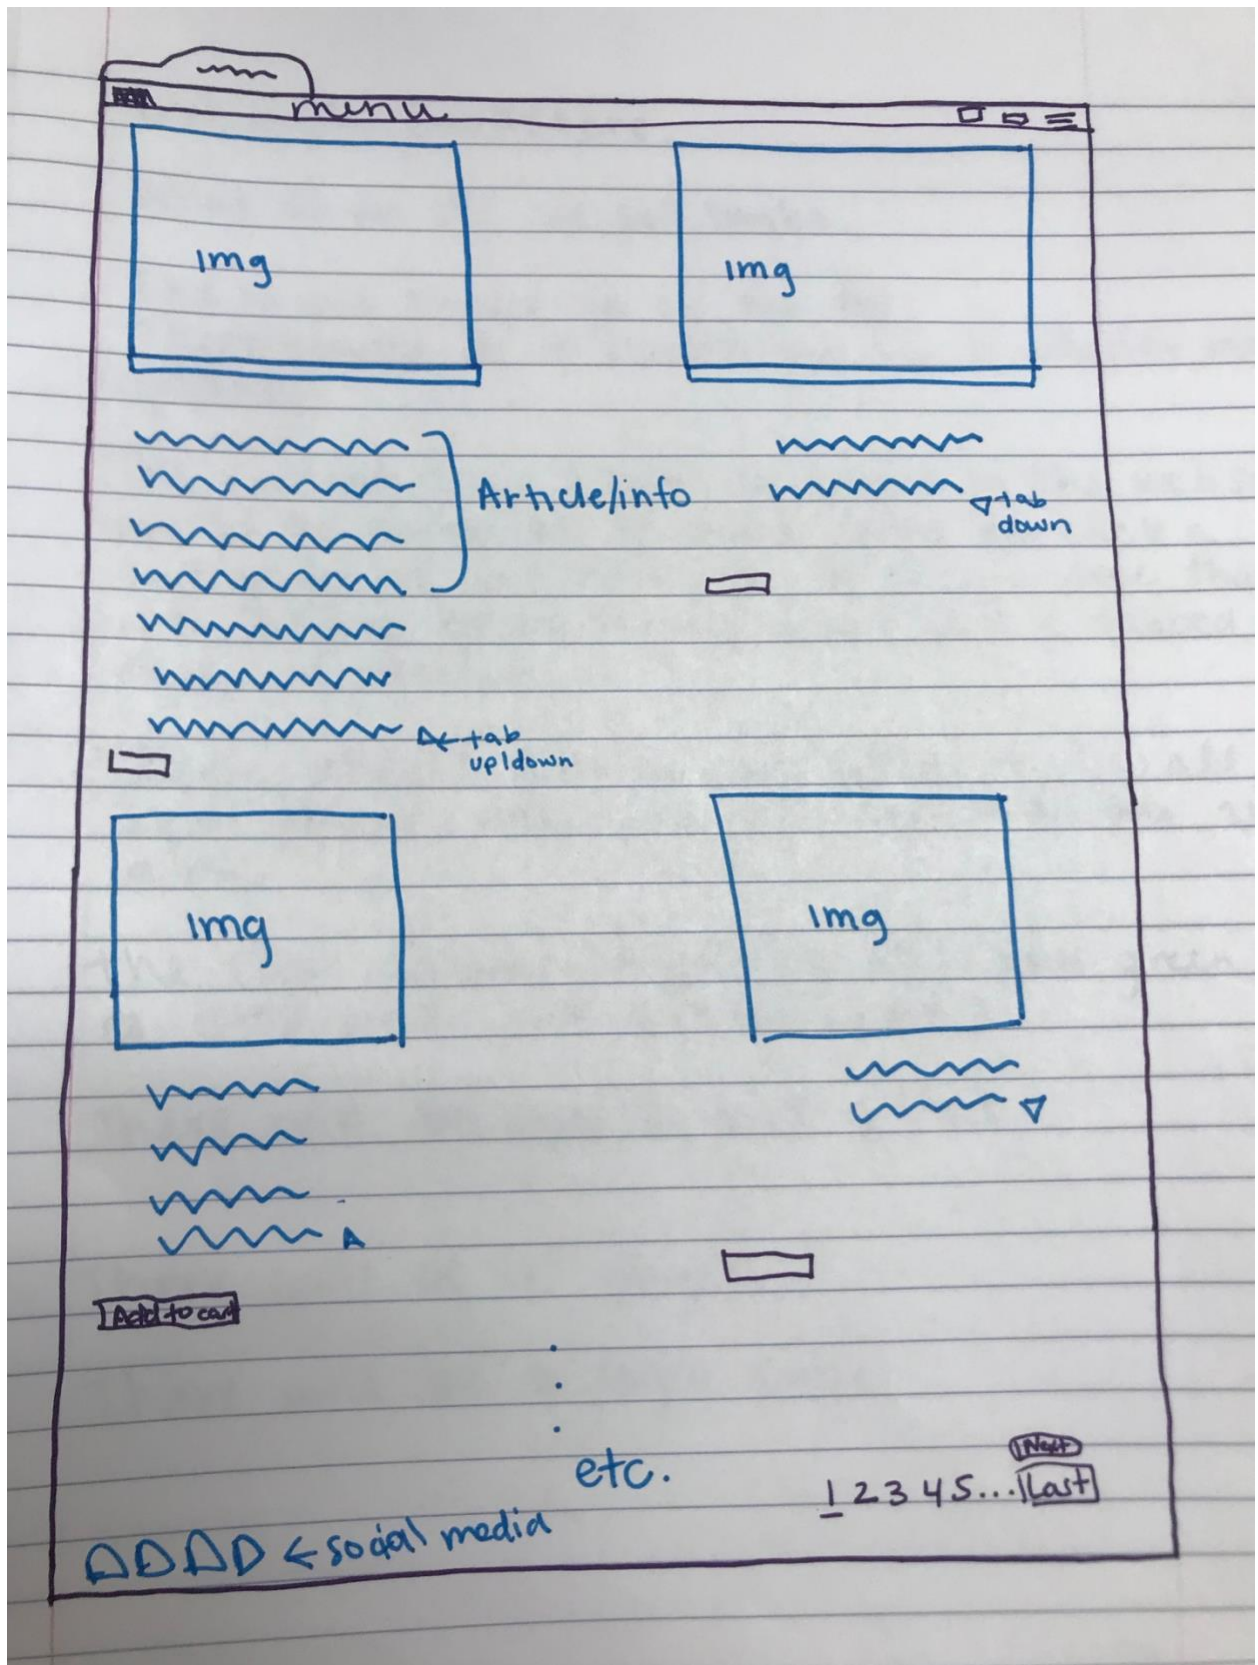 menu
img
img
Article/info
tab
down
tab
up/down
img
img
Add to cart
etc.
Next
1 2 3 4 5... Last
← social media